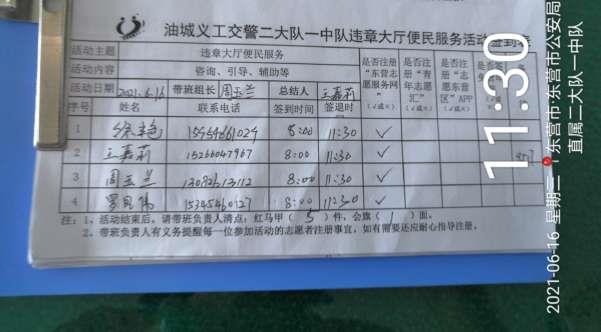 油城义工交警二大队一中队违章大厅便民服务活动签到表
活动主题 违章大厅便民服务
活动内容 咨询、引导、辅助等
活动日期 2021.6.16 带班组长 周玉兰 总结人 王嘉莉
是否注册"东营志愿服务网" (√或×)
是否注册"青年志愿汇" (√或×)
是否注册"志愿东营区"APP (√或×)
序号 姓名 联系电话 签到时间 签退时间
1 8:00 11:30 ✓
2 王嘉莉 15266047967 8:00 11:30 ✓
3 周玉兰 8:00 11:30 ✓
4 8:00 ✓
注:1、活动结束后,请带班负责人清点,红马甲(5)件,会旗(1)面。
2、带班负责人有义务提醒每一位参加活动的志愿者注册事宜,如有需要还应耐心指导注册。
11:30
2021-06-16 星期三
东营市·东营市公安局
直属二大队一中队